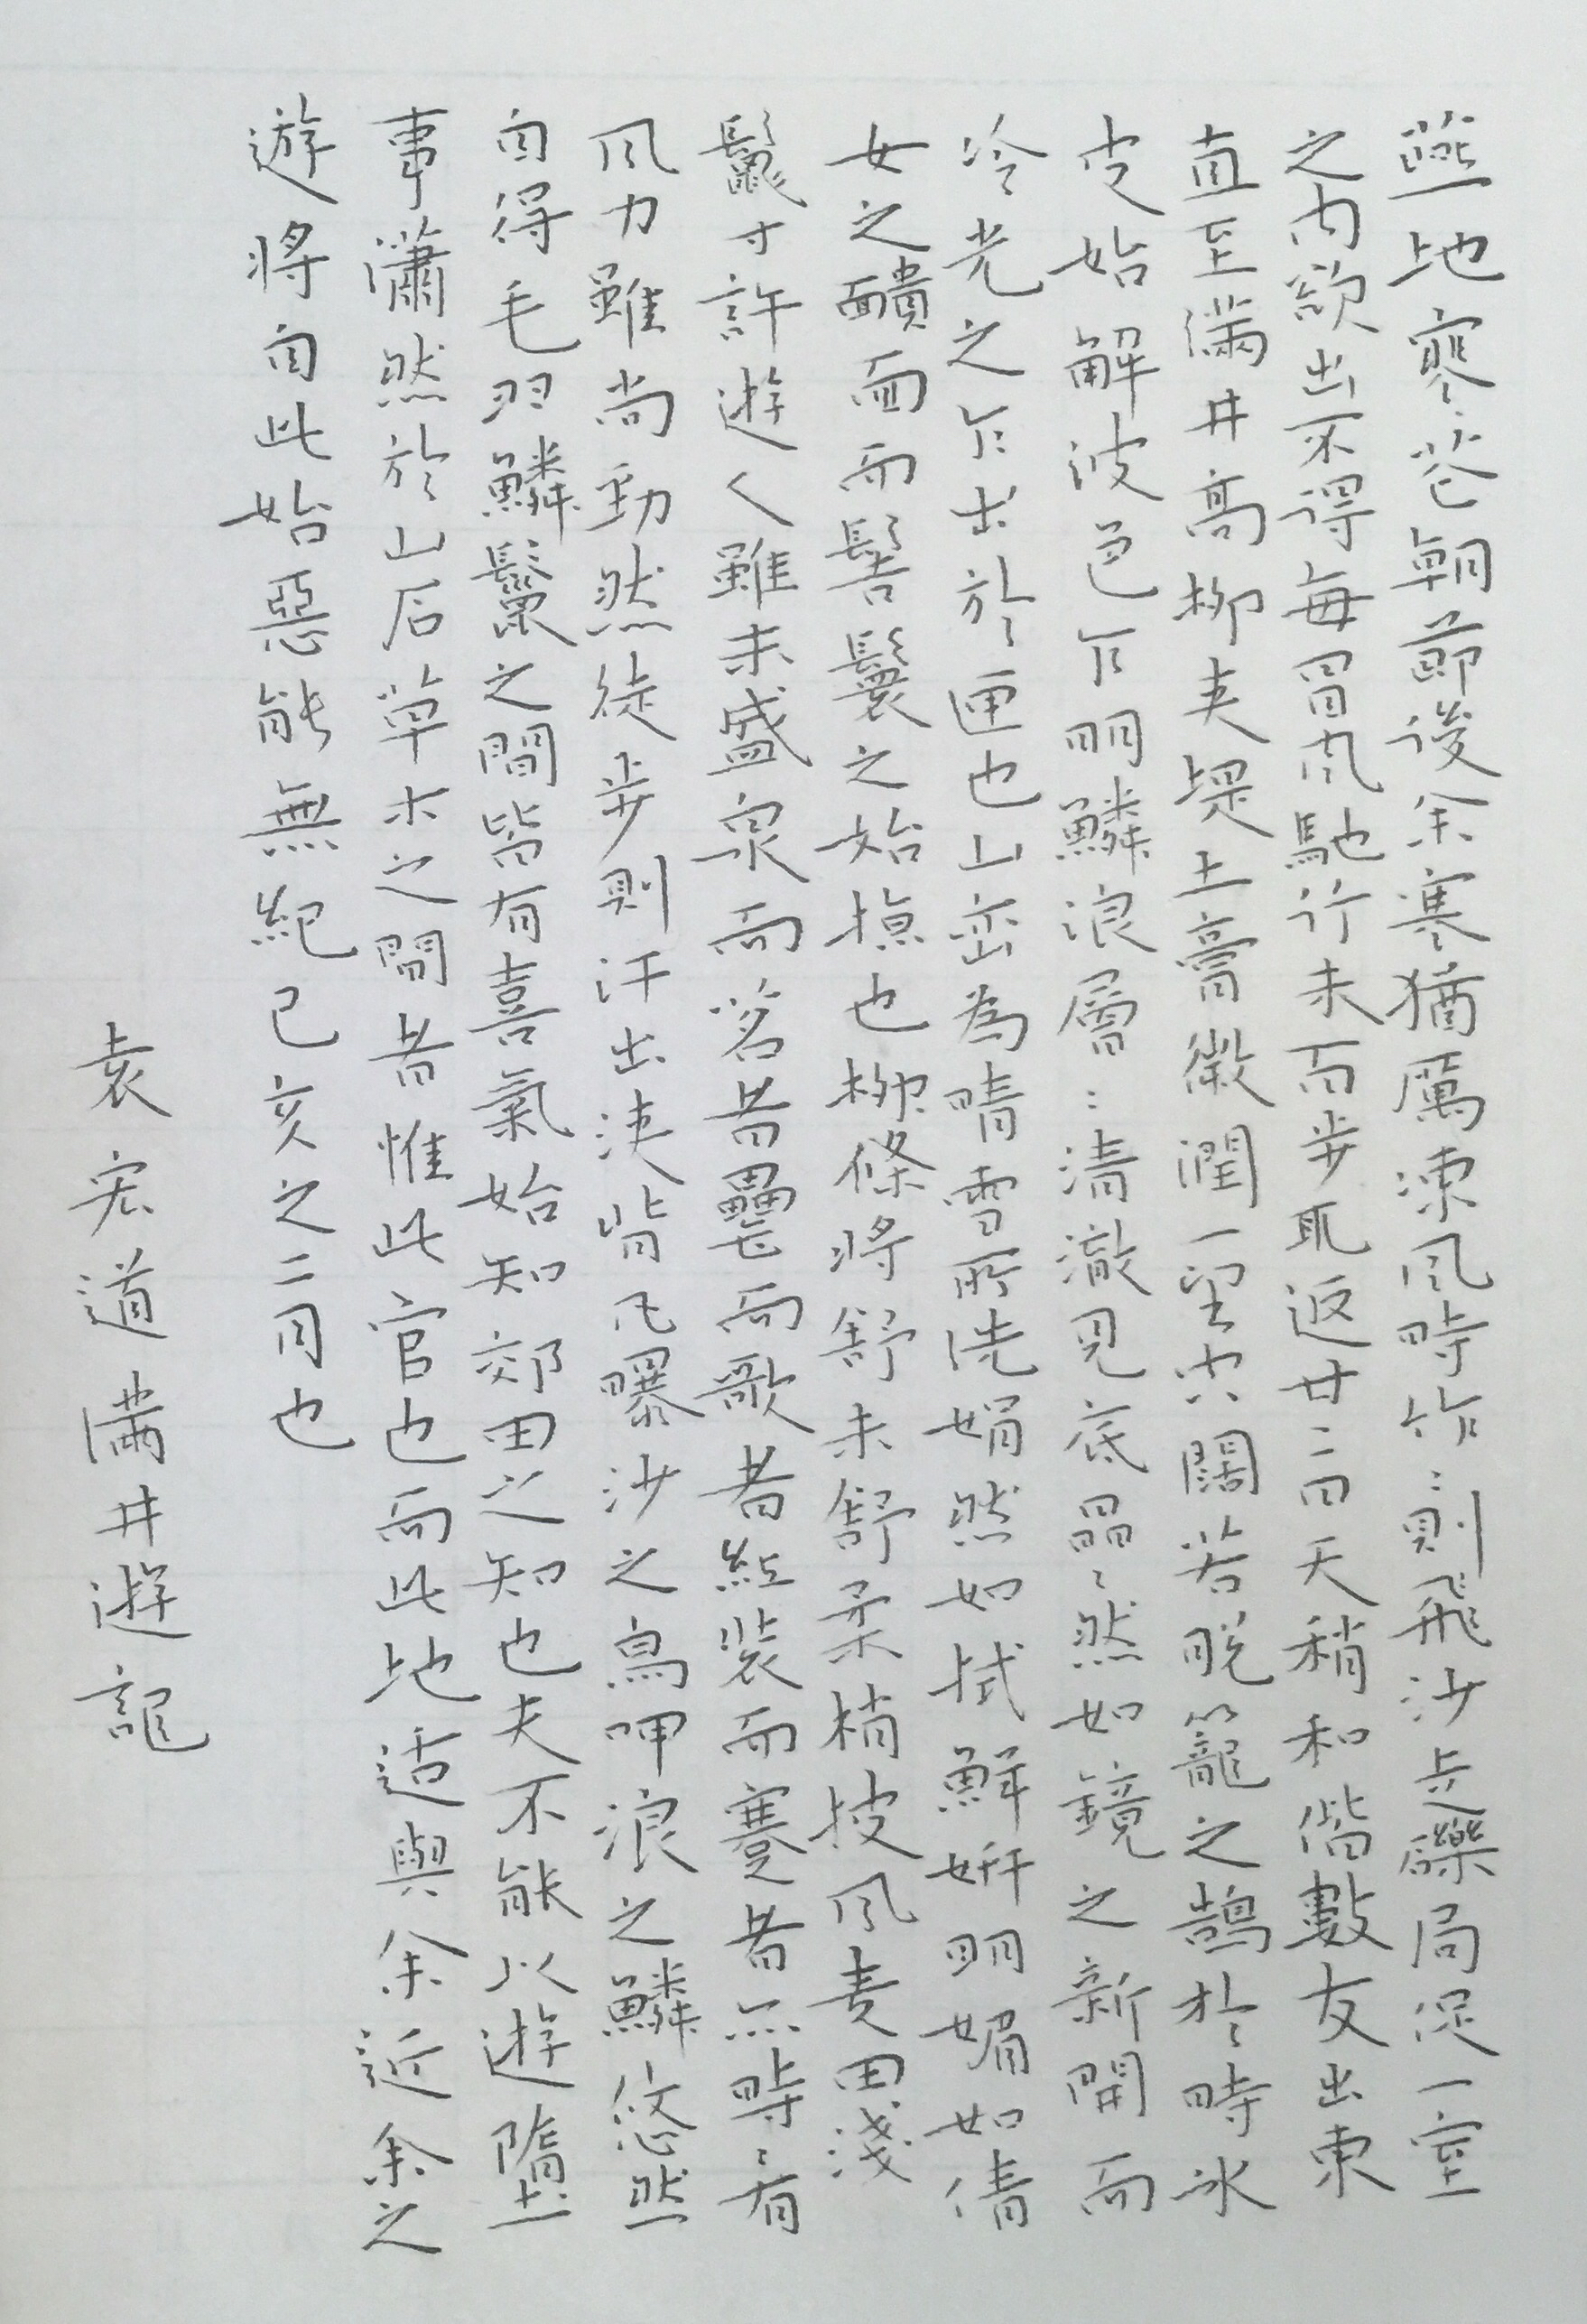 燕地寒花朝節後余寒猶厲凍風時作：則飛沙走礫局促一室
之內欲出不得每冒風馳行未百步輒返廿二日天稍和偕數友出東
直至滿井高柳夾堤土膏微潤一望空闊若脫籠之鵠於時冰
皮始解波色乍明鱗浪層：清澈見底晶〻然如鏡之新開而
冷光之乍出於匣也山巒為晴雪所洗娟然如拭鮮妍明媚如倩
女之靧面而髻鬟之始掠也柳條將舒未舒柔梢披風麦田淺
鬣寸許遊人雖未盛泉而茗者罍而歌者紅裝而蹇者亦時〻有
風力雖尚勁然徒步則汗出浹背凡曝沙之鳥呷浪之鱗悠然
自得毛羽鱗鬣之間皆有喜氣始知郊田之知也夫不能以遊墮
事瀟然於山石草木之間者惟此官也而此地适與余近余之
遊將自此始惡能無紀己亥之二月也
袁宏道滿井遊記